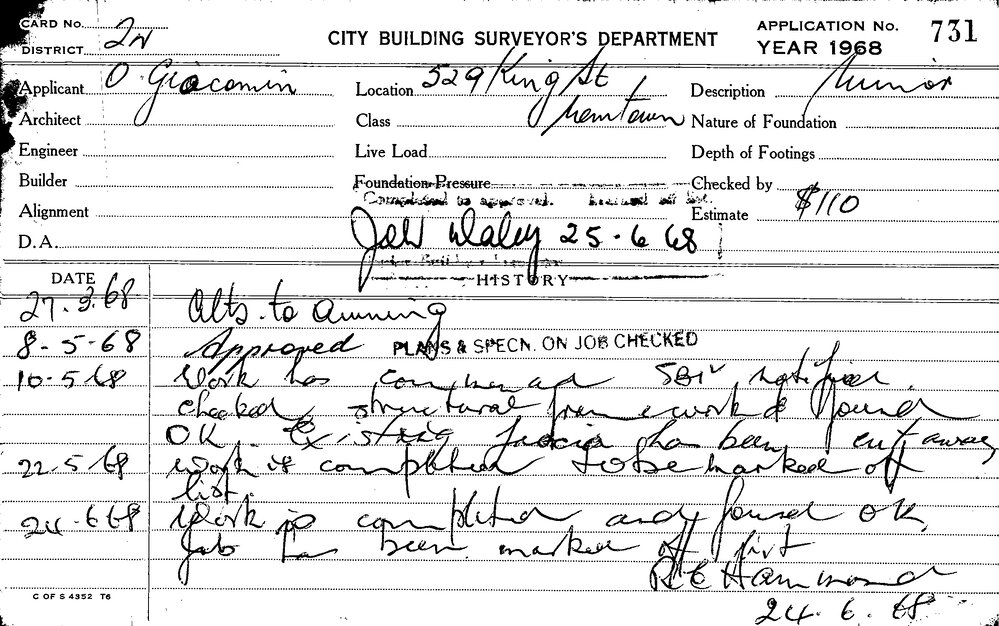 CARD No.
DISTRICT 2W
CITY BUILDING SURVEYOR'S DEPARTMENT
APPLICATION No. 731
YEAR 1968
Applicant O. Giacomin
Location 529 King St
Description Minor
Architect
Class Newtown
Nature of Foundation
Engineer
Live Load
Depth of Footings
Builder
Foundation Pressure
Checked by
Completed to approval.
Alignment
Estimate $110
D.A.
Daley 25-6 68
HISTORY
DATE
27.3.68 Alts. to awning
8-5-68 Approved PLANS & SPECN. ON JOB CHECKED
10-5 68 Work has commenced SBI notified.
checked structural framework & found
OK. Existing fascia has been cut away
22.5 68 work is completed to be marked off
list.
24.6 68 Work is completed and found OK.
Job has been marked off list
R C Hammond
24.6.68
C OF S 4352 T6